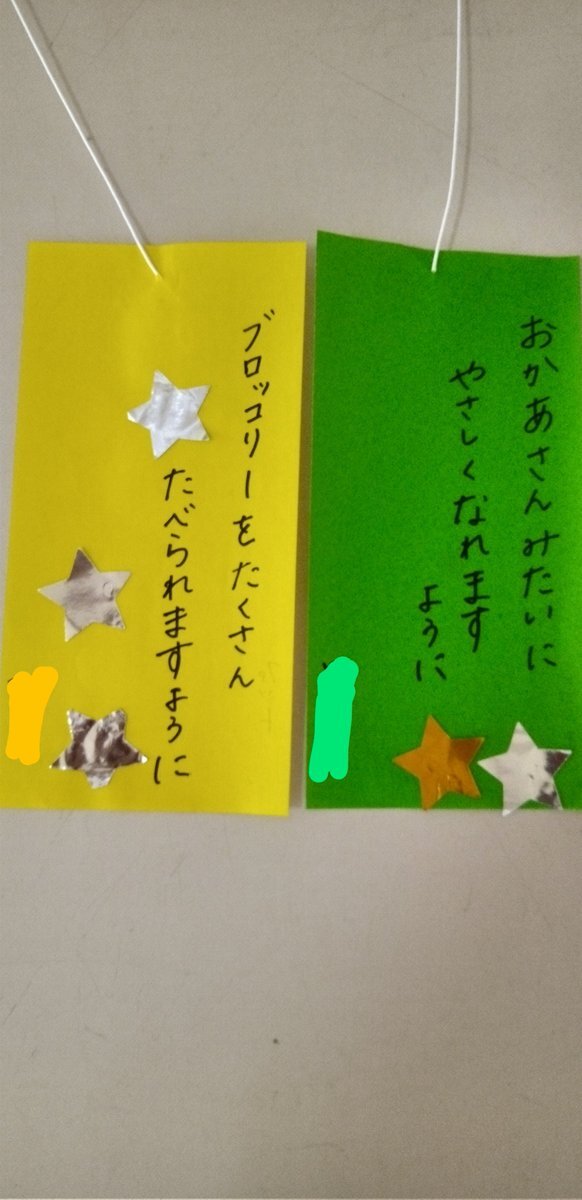 ブロッコリーをたくさん
たべられますように
おかあさんみたいに
やさしくなれます
ように